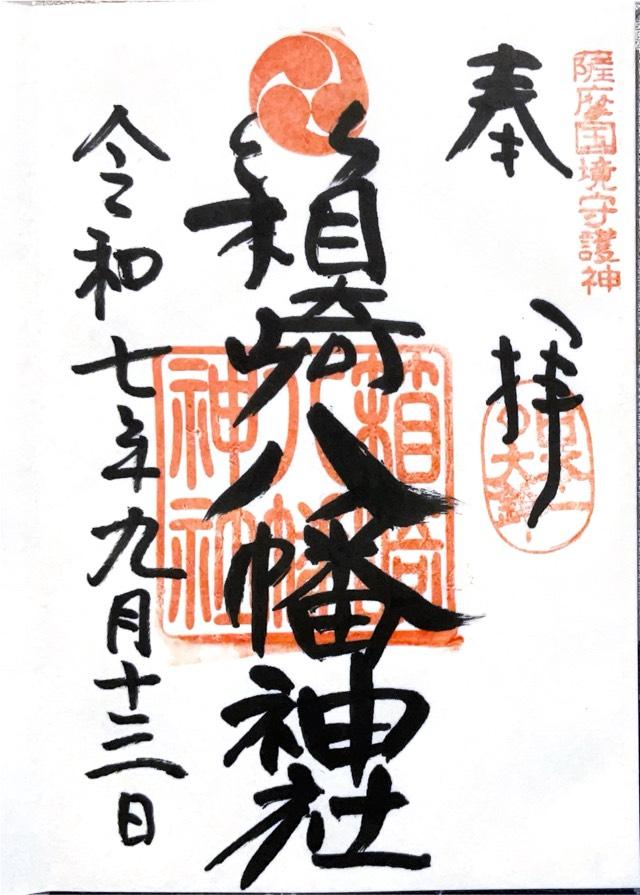 薩摩国境守護神
奉拝
日本一の大鈴
箱崎八幡神社
箱崎八幡神社
令和七年九月十三日